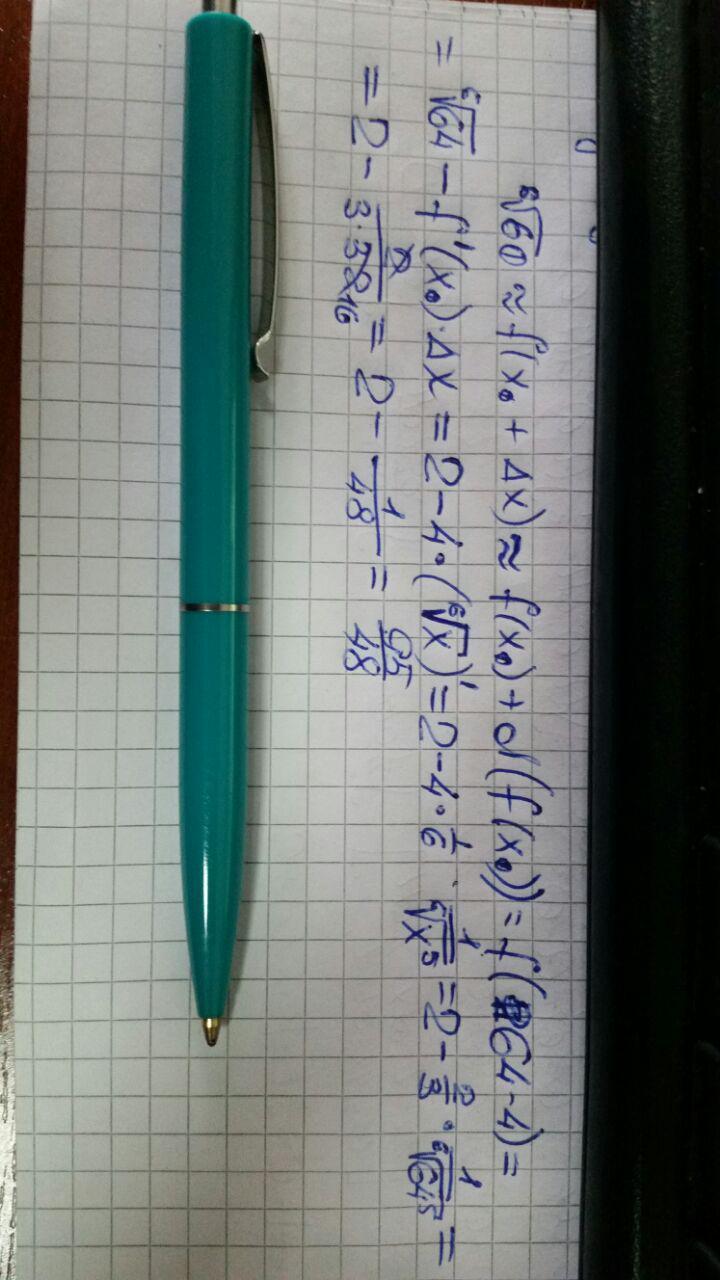 ⁶√60 ≈ f(x₀ + Δx) ≈ f(x₀) + d(f(x₀)) = f(64-4) =
= ⁶√64 - f'(x₀)·Δx = 2 - 4·(⁶√x)' = 2 - 4·1/6 · 1/⁶√x⁵ = 2 - 2/3 · 1/⁶√64⁵ =
= 2 - 2/3·32₁₆ = 2 - 1/48 = 95/48